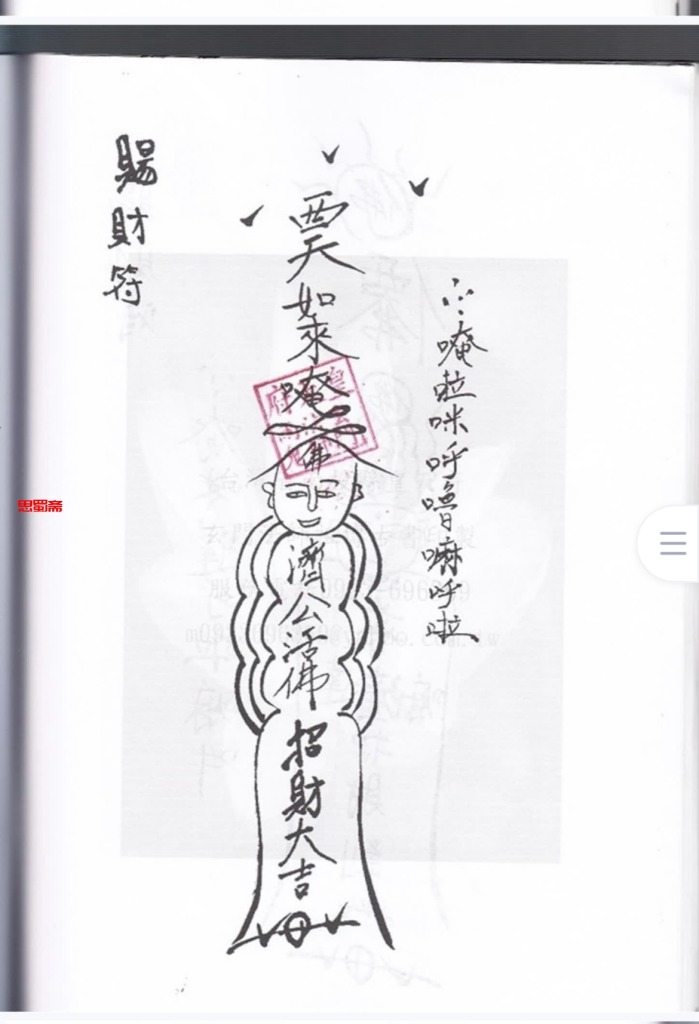 賜財符
西天如來唵
佛
濟公活佛
招財大吉
唵啦咪呼嚕嘛呼啦
思蜀斋